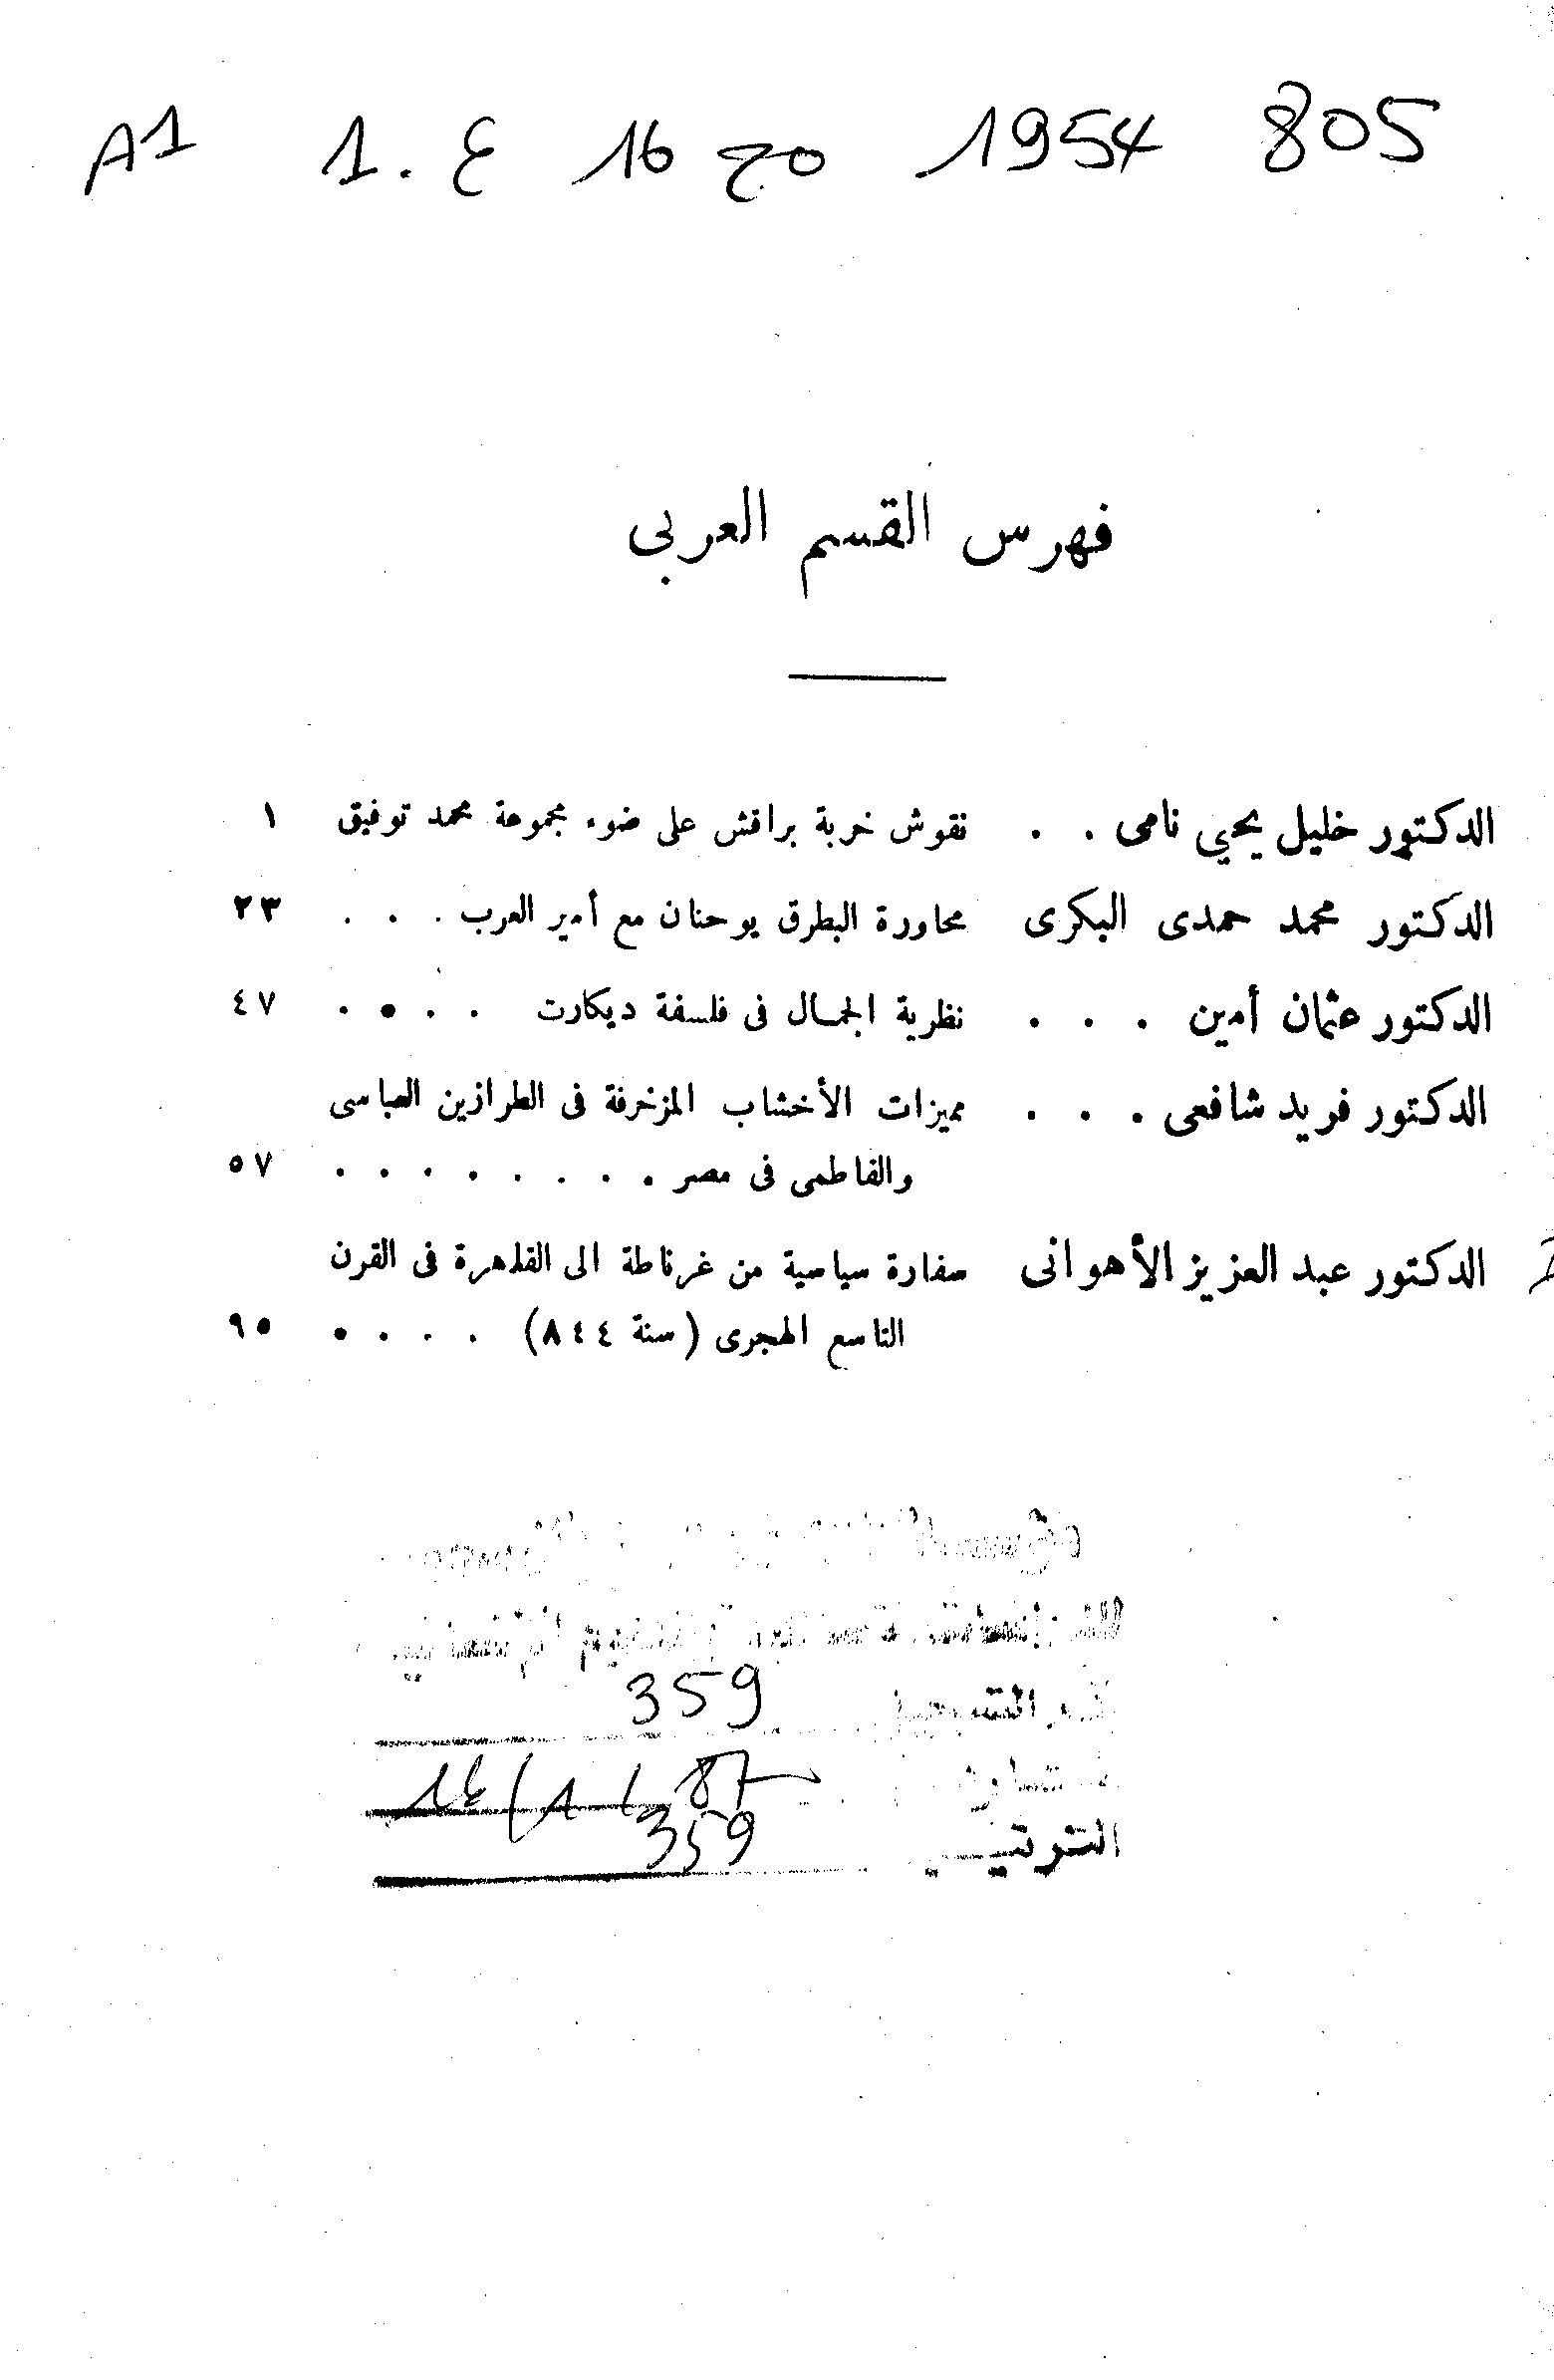 A1 1. ع 16 مج 1954 805
فهرس القسم العربى
الدكتور خليل يحيي نامى . . نقوش خربة براقش على ضوء مجموعة محمد توفيق ١
الدكتور محمد حمدى البكرى محاورة البطرق يوحنان مع أمير العرب . . . ٢٣
الدكتور عثمان أمين . . . نظرية الجمال فى فلسفة ديكارت . . . . ٤٧
الدكتور فريد شافعى . . . مميزات الأخشاب المزخرفة فى الطرازين العباسى
والفاطمى فى مصر . . . . . . . . ٥٧
الدكتور عبد العزيز الأهوانى سفارة سياسية من غرناطة الى القاهرة فى القرن
التاسع الهجرى (سنة ٨٤٤) . . . . ٩٥
359
14/1/87
الترتيب 359